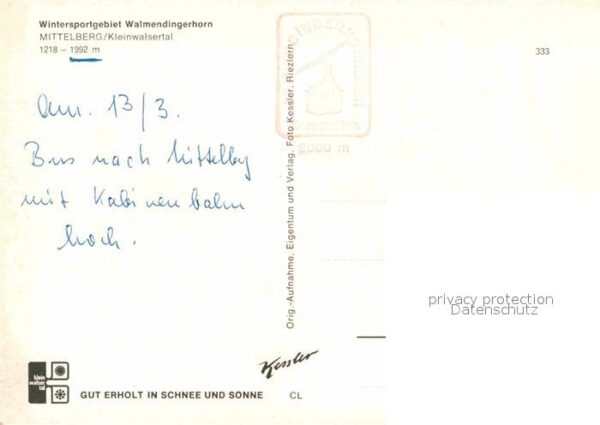 Wintersportgebiet Walmendingerhorn
MITTELBERG/Kleinwalsertal
1218 – 1992 m
333
Am. 13/3.
Bus nach Mittelbg
mit Kabinenbahn
hoch.
Bergstation
2000 m
Orig.-Aufnahme, Eigentum und Verlag, Foto Kessler, Riezlern
privacy protection
Datenschutz
Kessler
klein
walser
tal
GUT ERHOLT IN SCHNEE UND SONNE
CL